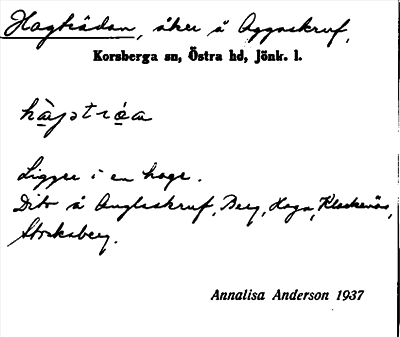 Hagträdan, åker å Aggaskruf,
Korsberga sn, Östra hd, Jönk. l.
hàgstróa
Ligger i en hage.
Dito å Anglaskruf, Berg, Haga, Klockenäs,
Stocksberg.
Annalisa Anderson 1937